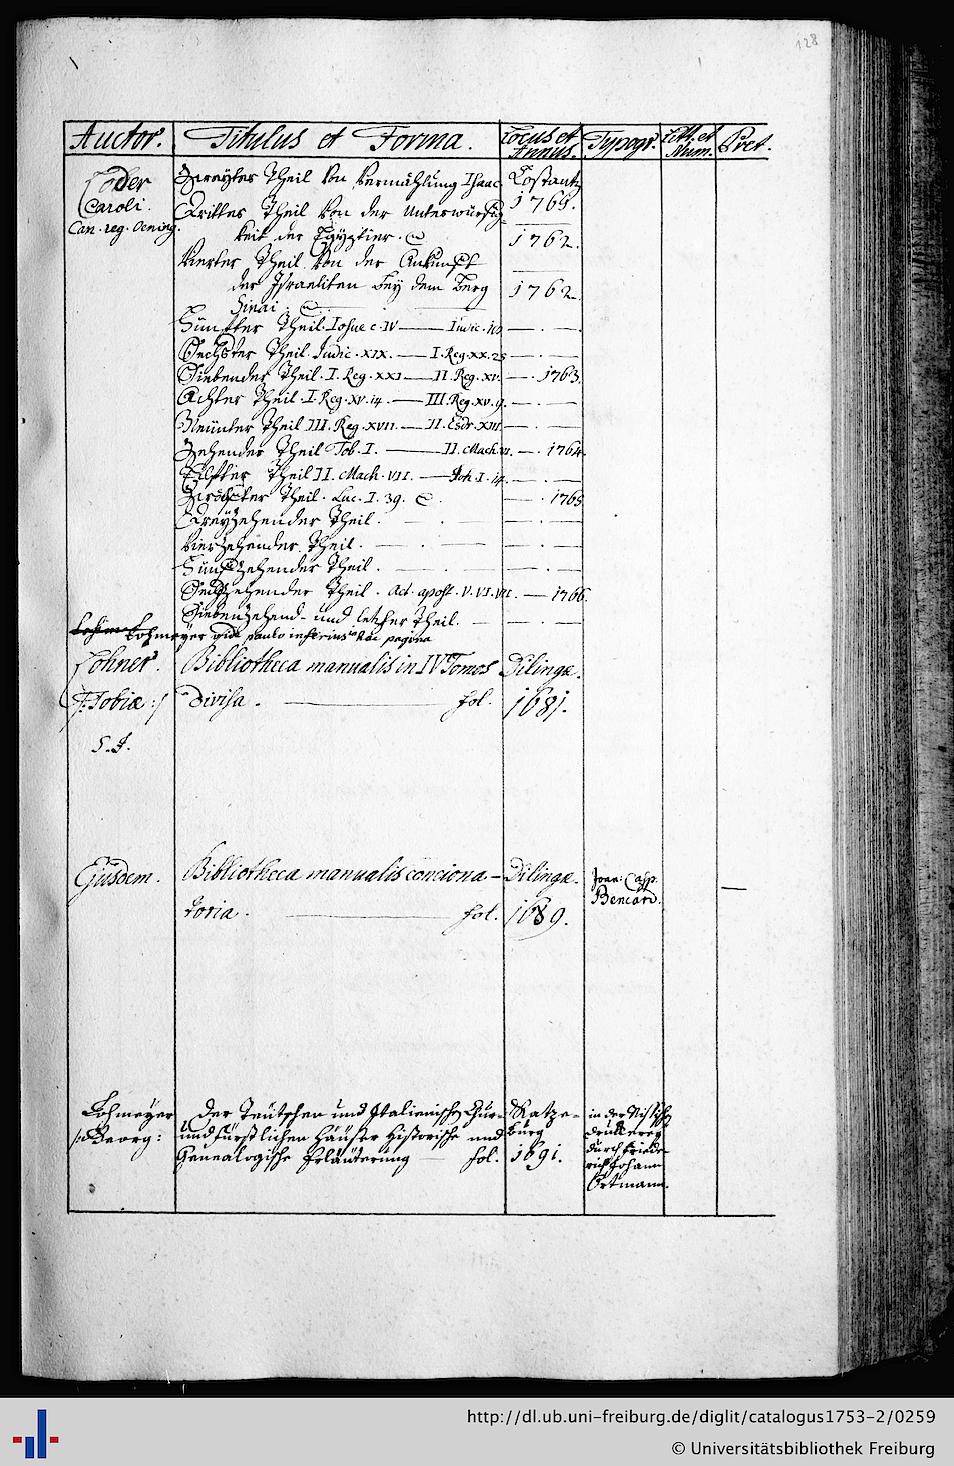 128
Auctor. Titulus et Forma. Locus et Annus. Typogr. Litt. et Num. Pret.
Loder Zweyter Theil von Vermählung Isaac Costantz
Caroli. 1761.
Can. reg. Oening. Dritter Theil von der Unterwürfig
keit der Egyptier. 1762.
Vierter Theil von der Ankunft
der Israeliten bey dem Berg 1762.
Sinai.
Fünfter Theil. Iosue c. IV — Iudic. — . —
Sechster Theil. Iudic. XIX. — I. Reg. XX. 25 — . —
Siebender Theil. I. Reg. XXI — II. Reg. XV. — . 1763.
Achter Theil. I. Reg. XV. 14. — III. Reg. XV. 9. — . —
Neünter Theil III. Reg. XVII. — II. Esdr. XIII. — . —
Zehender Theil Tob. I. — II. Mach. VI. — . 1764.
Eilfter Theil II. Mach. VII. — Joh. I. 14. — . —
Zwölfter Theil. Luc. I. 39. — . 1765
Dreyzehender Theil. — . —
Vierzehender Theil. — . —
Fünfzehender Theil. — . —
Sechzehender Theil. Act. apost. V. VI. VII. — 1766.
Siebenzehend- und letzter Theil. — . —
Lohmeyer vide paulo inferius hac pagina
Lohner. Bibliotheca manualis in IV Tomos Dilingæ.
/:Tobiæ:/ Divisa. — fol. 1681.
S. J.
Ejusdem. Bibliotheca manualis conciona- Dilingæ. Joan: Casp.
toria. — fol. 1689. Bencard. —
Lohmeyer Der Teütschen und Italienischen Chur- Ratze- in der
/:Georg: und fürstlichen Häuser Historische und burg druckerey
Genealogische Erläuterung — fol. 1691. durch Friede-
rich Johann
Ortmann.
http://dl.ub.uni-freiburg.de/diglit/catalogus1753-2/0259
© Universitätsbibliothek Freiburg